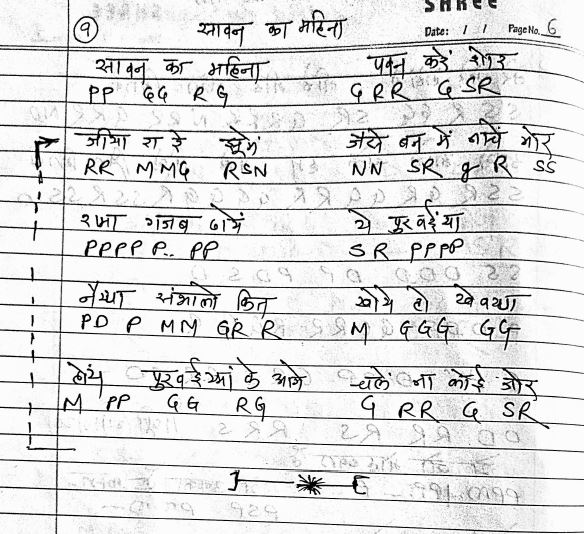 SHREE
Date: / / Page No. 6
९ सावन का महिना
सावन का महिना पवन करें शोर
PP GG RG GRR G SR
जीया रा रे झूमें जैसे बन में नाचें मोर
RR MMG RSN NN SR g R SS
रामा गजब ढायें ये पुरवईया
PPPP P.. PP SR PPPP
नैय्या संभालो कित खोये हो खेवय्या
PD P MM GR R M GGG GG
होय पुरवईय्यां के आगे चलें ना कोई जोर
M PP GG RG G RR G SR